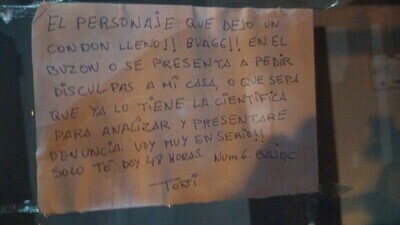 EL PERSONAJE QUE DEJO UN
CONDON LLENO!! BUAGG!! EN EL
BUZON O SE PRESENTA A PEDIR
DISCULPAS A MI CASA, O QUE SEPA
QUE YA LO TIENE LA CIENTIFICA
PARA ANALIZAR Y PRESENTARE
DENUNCIA. VOY MUY EN SERIO!!
SOLO TE DOY 48 HORAS. NUM 6. BAJOC
TOÑI